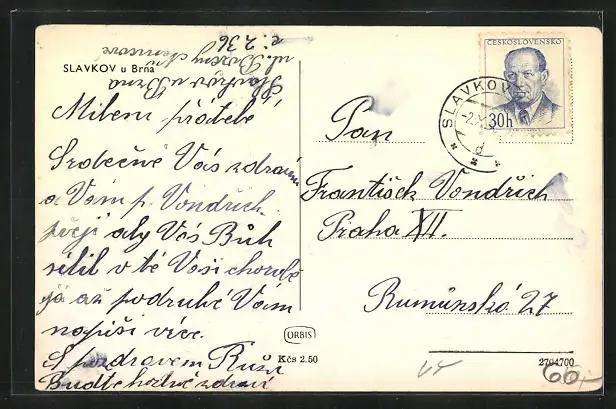 SLAVKOV u Brna
Slavkov u Brna
ul. Boženy Němcové
č. 236
Milení přátelé
Srdečně Vás zdravím
a Vám p. Vondřich
přeji aby Vás Bůh
sílil v té Vaší chorobě
já až podruhé Vám
napíši více.
S pozdravem Ruža
Buďte hodně zdraví
ORBIS
Kčs 2.50
ČESKOSLOVENSKO
30h
SLAVKOV
d
Pan
František Vondřich
Praha XII.
Rumunská 27
2704700
60,-